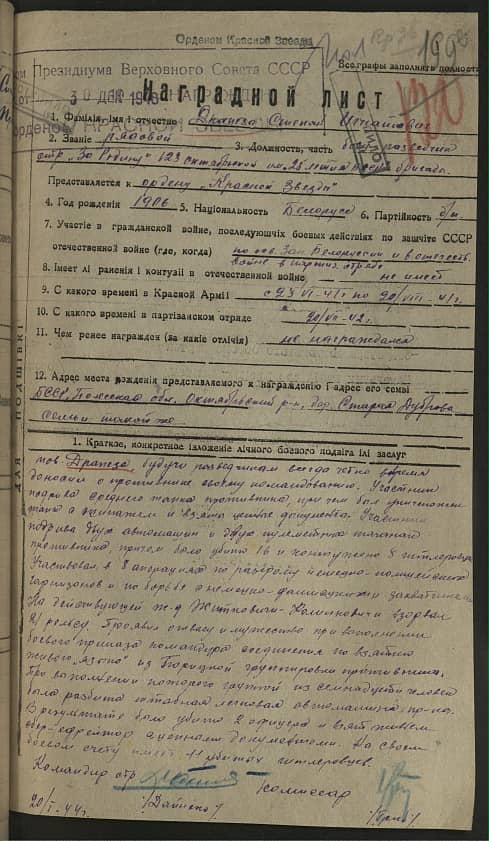 Орденом Красной Звезды
199
Президиума Верховного Совета СССР
Все графы заполнять полностью
30 ДЕК 1948
Наградной лист
1. Фамілія, імя і отчество Драпеза Степан
2. Званіе рядовой 3. Должность, часть боец разведчик
отр. "За Родину" 123 октябрьской им. 25 летия БССР бригады
Представляется к ордену "Красной Звезды"
4. Год рожденія 1906 5. Національность Белорус 6. Партійность б/п
7. Участіе в гражданской войне, последующіх боевых действіях по защіте СССР
отечественной войне (где, когда) по осв. Зап. Белоруссии и в отечеств.
войне в партиз. отряде
8. Імеет лі раненія і контузіі в отечественной войне не имеет
9. С какого времені в Красной Арміі с 23/VI-41г по 20/VIII-41г.
10. С какого времені в партізанском отряде 20/VII-42г.
11. Чем ренее награжден (за какіе отлічія) не награждался
12. Адрес места рожденія представляемого к награжденію і адрес его семьі
БССР, Полесская обл. Октябрьский р-н, дер. Старая Дуброва
семьи такой же
ДЛЯ ПОДШІВКІ
1. Краткое, конкретное ізложеніе лічного боевого подвіга ілі заслуг
тов. Драпеза, будучи разведчиком всегда четко время
доносил о противнике своему командованию. Участник
подрыва среднего танка противника, при чем был уничтожен
танк с экипажем и взяты ценные документы. Участник
подрыва двух автомашин и двух
противника, причем было убито 16 и контужено 8 гитлеровцев
Участвовал в 8 операциях по разгрому немецко-полицейских
гарнизонов и по борьбе с немецко-фашистскими захватчиками.
На действующей ж-д Житковичи-Калинковичи взорвал
21 рельсу. Проявил отвагу и мужество при выполнении
боевого приказа командира соединения по взятию
живого "языка" из группировки противника.
При выполнении которого группой из семнадцати человек
была разбита штабная легковая автомашина пр-ка.
В результате было убито 2 офицера и взят живьем
обер-ефрейтор с ценными документами. На своем
боевом счету имеет 11 убитых гитлеровцев.
Командир отр. Комиссар
20/I-44г.